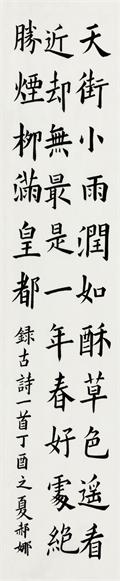 天街小雨潤如酥草色遥看
近却無最是一年春好處絕
勝煙柳滿皇都
録古詩一首丁酉之夏郝娜